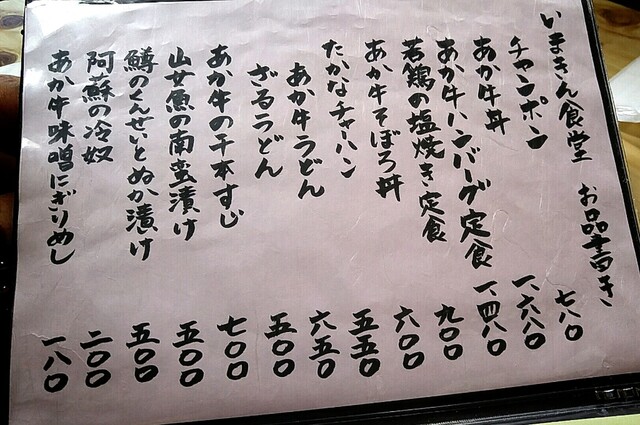 いまきん食堂 お品書き
チャンポン 七八〇
あか牛丼 一、六八〇
あか牛ハンバーグ定食 一、四八〇
若鶏の塩焼き定食 九〇〇
あか牛そぼろ丼 六〇〇
たかなチャーハン 五五〇
あか牛うどん 六五〇
ざるうどん 五〇〇
あか牛の千本すじ 七〇〇
山女魚の南蛮漬け 五〇〇
鱒のくんせいとぬか漬け 五〇〇
阿蘇の冷奴 二〇〇
あか牛味噌にぎりめし 一八〇